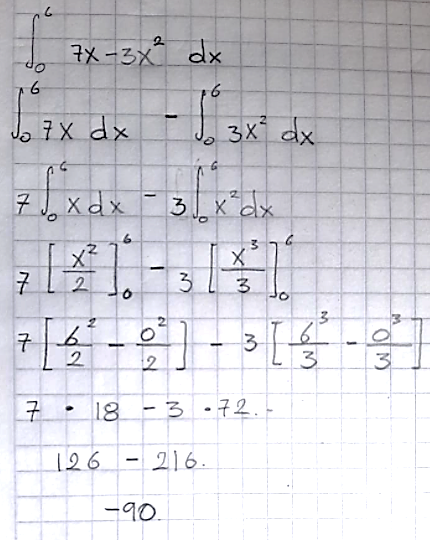 ∫₀⁶ 7x-3x² dx
∫₀⁶ 7x dx - ∫₀⁶ 3x² dx
7 ∫₀⁶ x dx - 3 ∫₀⁶ x² dx
7 [x²/2]₀⁶ - 3 [x³/3]₀⁶
7 [6²/2 - 0²/2] - 3 [6³/3 - 0³/3]
7 · 18 - 3 · 72.-
126 - 216.
-90.